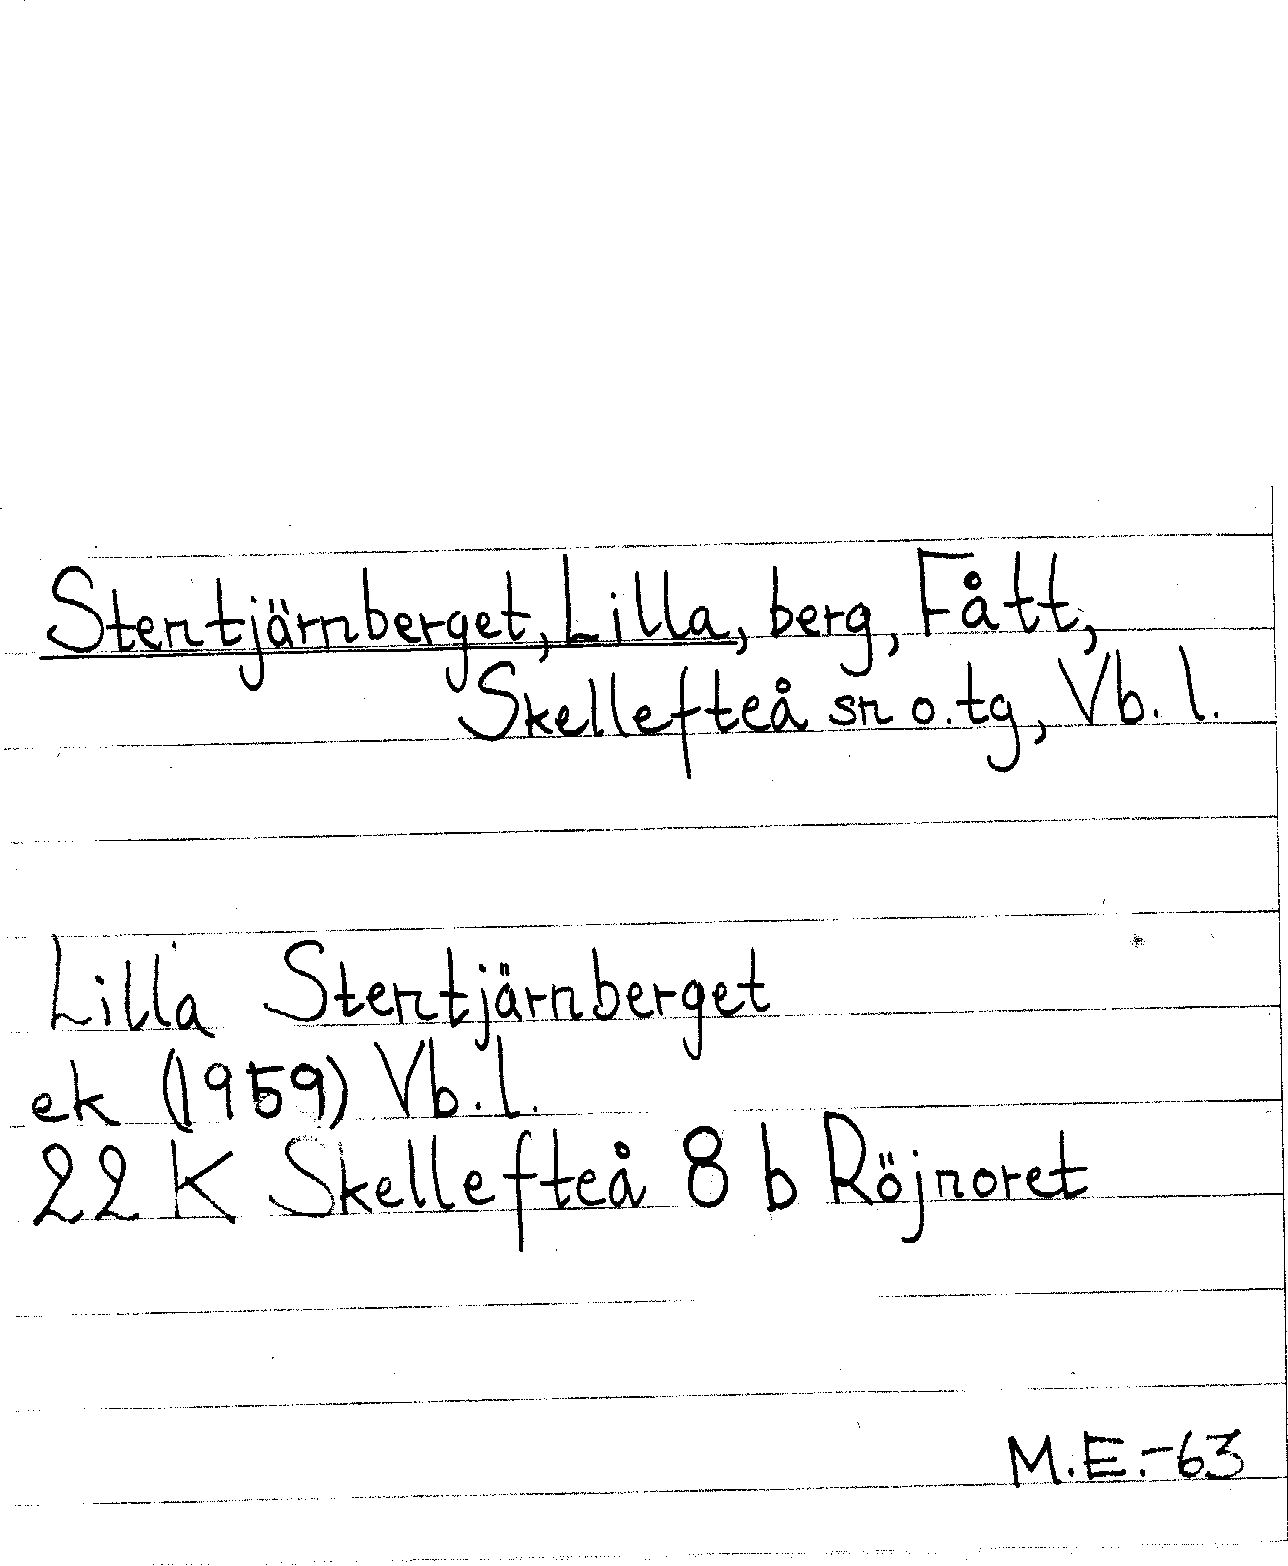 Stentjärnberget, Lilla, berg, Fått,
Skellefteå sn o. tg, Vb. l.
Lilla Stentjärnberget
ek (1959) Vb. l.
22 K Skellefteå 8 b Röjnoret
M.E.-63